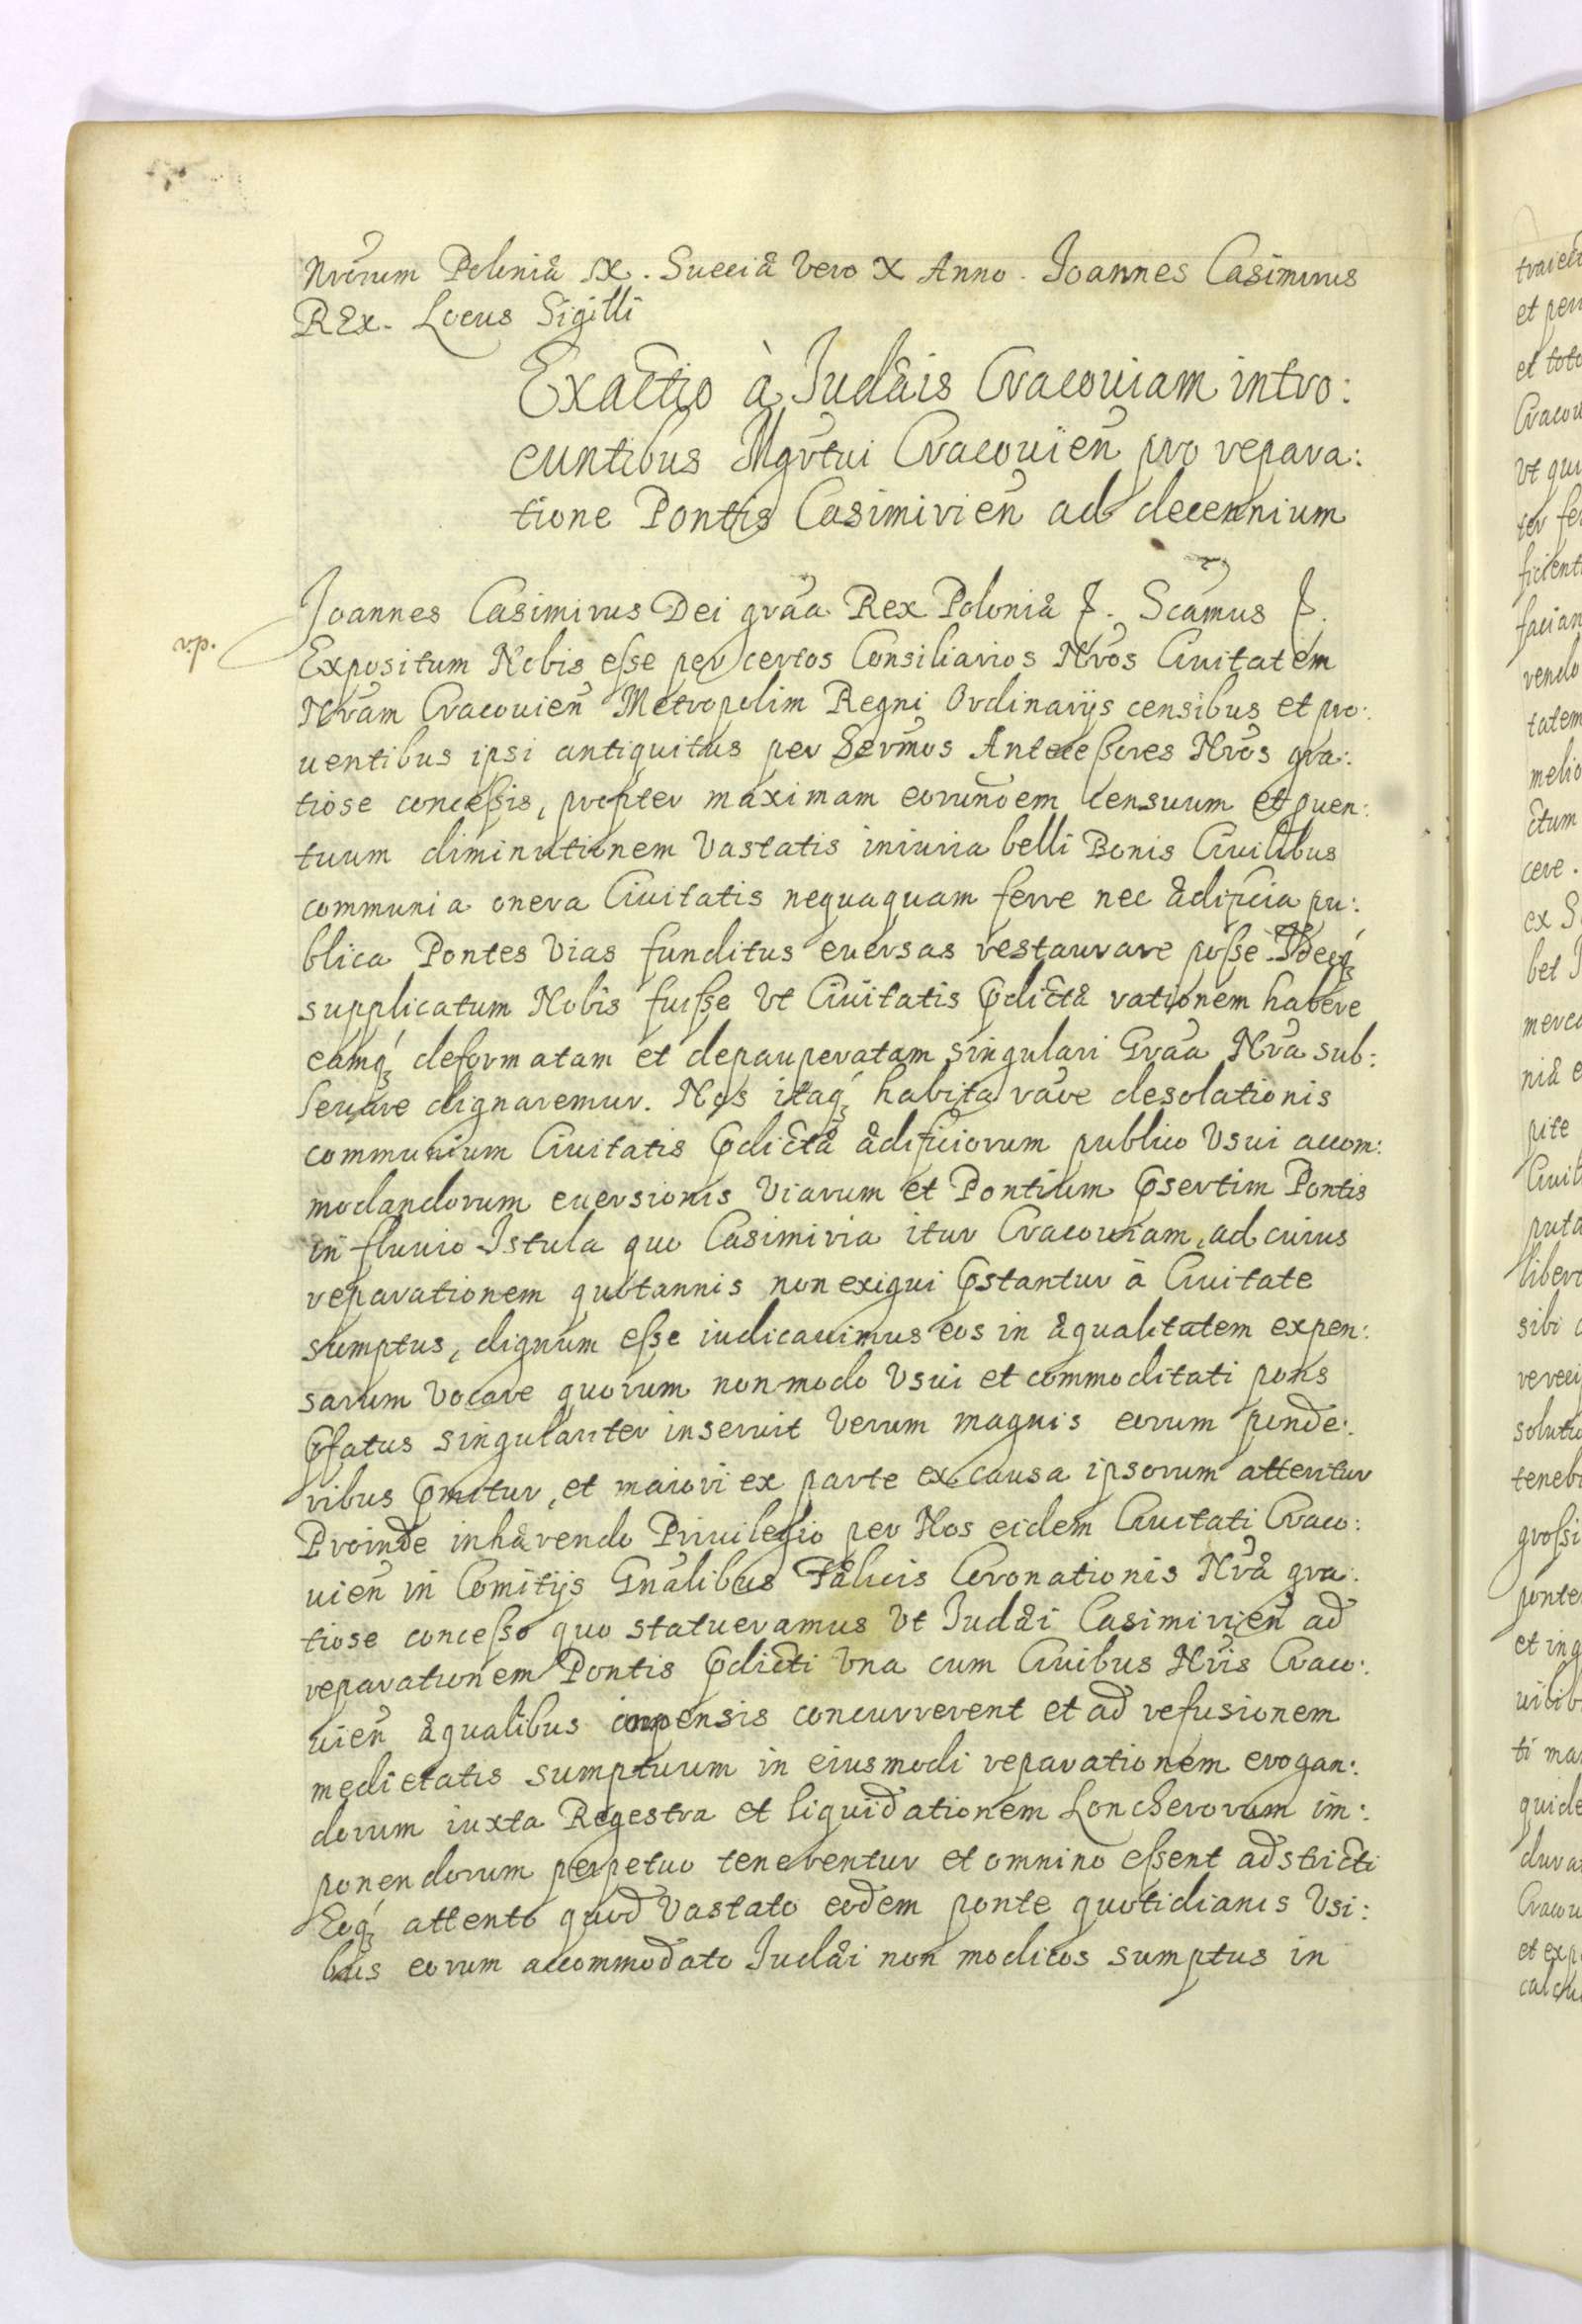 Nrorum Poloniæ IX. Sueciæ Vero X Anno. Joannes Casimirus
REx. Locus Sigilli
Exactio à Judæis Cracouiam intro:
euntibus Mgrtui Cracouien pro repara:
tione Pontis Casimirien ad decennium
Joannes Casimirus Dei graa Rex Poloniæ &. Scamus &.
r.p.
Expositum Nobis eſse per certos Consiliarios Nros Ciuitatem
Nram Cracouien Metropolim Regni Ordinarijs censibus et pro:
uentibus ipsi antiquitus per Sermos Anteceſsores Nros gra:
tiose conceſsis, propter maximam eorundem Censuum et puen:
tuum diminutionem Vastatis iniuria belli Bonis Ciuilibus
communia onera Ciuitatis nequaquam ferre nec ædificia pu:
blica Pontes Vias funditus euersas restaurare poſse Ideoq́ꝫ
supplicatum Nobis fuiſse Vt Ciuitatis Pdictæ rationem habere
eamq́ꝫ deformatam et depauperatam singulari Graa Nra sub:
leuare dignaremur. Nos itaq́ꝫ habita raoe desolationis
communium Ciuitatis Pdictæ ædificiorum publico Vsui accom:
modandorum euersionis Viarum et Pontium Psertim Pontis
in fluuio Istula quo Casimiria itur Cracouiam, ad cuius
reparationem quotannis non exigui Pstantur à Ciuitate
sumptus, dignum eſse iudicauimus eos in æqualitatem expen:
sarum Vocare quorum non modo Vsui et commoditati pons
Pfatus singulariter inseruit Verum magnis eorum ponde:
ribus Pmitur, et maiori ex parte ex causa ipsorum atteritur
Proinde inhærendo Priuilegio per Nos eidem Ciuitati Craco:
uien in Comitijs Gnalibus Fælicis Coronationis Nræ gra:
tiose conceſso quo statueramus Vt Judæi Casimirien ad
reparationem Pontis Pdicti Vna cum Ciuibus Nris Craco:
uien æqualibus impensis concurrerent et ad refusionem
medietatis sumptuum in eiusmodi reparationem erogan:
dorum iuxta Regestra et liquidationem Loncherorum im:
ponendorum perpetuo tenerentur et omnino eſsent adstricti
Eoq́ꝫ attento quod Vastato eodem ponte quotidianis Vsi:
bus eorum accommodato Judæi non modicos sumptus in